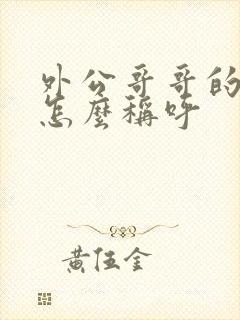 外公哥哥的
怎麼稱呼
黃伍金